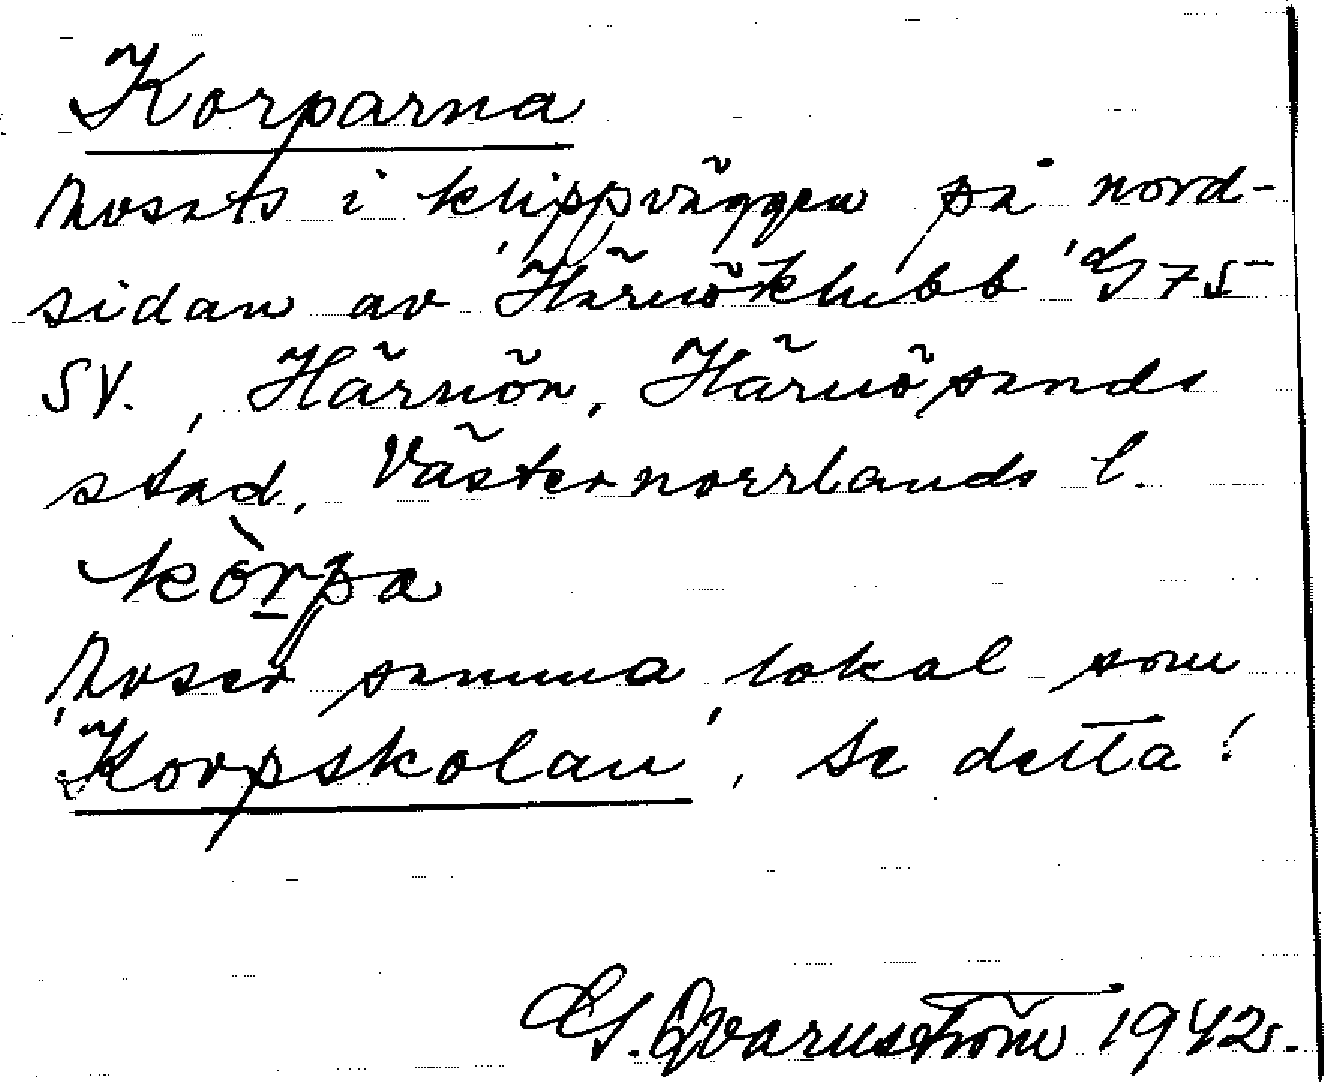 Korparna
Avsats i klippväggen på nord-
sidan av 'Härnöklubb' G 75
SV., Härnön, Härnösands
stad, Västernorrlands l.
kòrpa
Avser samma lokal som
'Korpskolan', se detta!
G. Qvarnström 1942.